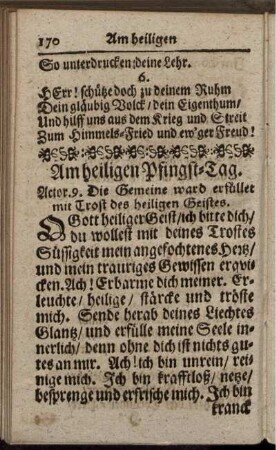 170 Am heiligen
So unterdrucken deine Lehr.
6.
HErr! schütze doch zu deinem Ruhm
Dein gläubig Volck / dein Eigenthum /
Und hilff uns aus dem Krieg und Streit
Zum Himmels-Fried und ew'ger Freud!
Am heiligen Pfingst-Tag.
Actor. 9. Die Gemeine ward erfüllet
mit Trost des heiligen Geistes.
O Gott heiliger Geist / ich bitte dich /
du wollest mit deines Trostes
Süssigkeit mein angefochtenes Hertz /
und mein trauriges Gewissen erqvi-
cken. Ach! Erbarme dich meiner. Er-
leuchte / heilige / stärcke und tröste
mich. Sende herab deines Liechtes
Glantz / und erfülle meine Seele in-
nerlich / denn ohne dich ist nichts gu-
tes an mir. Ach! ich bin unrein / rei-
nige mich. Ich bin krafftloß / netze /
besprenge und erfrische mich. Ich bin
kranck